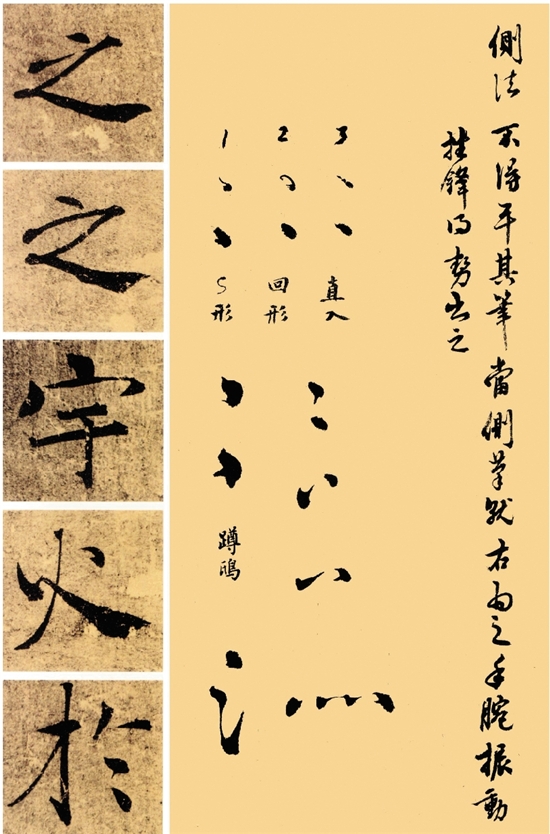 側法 不得平其筆 當側筆就右為之 手腕振動
挫鋒得勢出之
3
直入
2
回形
1
S形
蹲鴟
之
之
宇
火
於